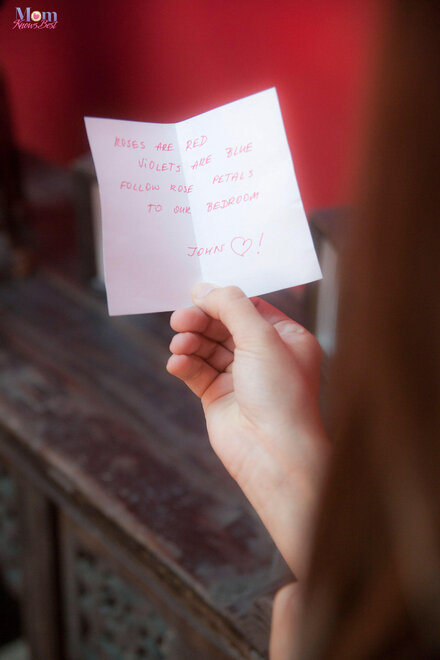 Mom
Knows Best
ROSES ARE RED
VIOLETS ARE BLUE
FOLLOW ROSE PETALS
TO OUR BEDROOM
JOHN ♡!